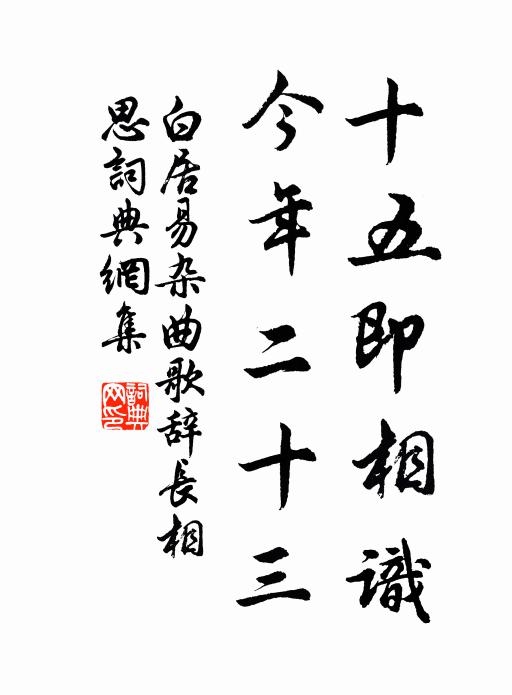 十五即相識
今年二十三
白居易杂曲歌辞長相
思詞典網集
詞典
网印